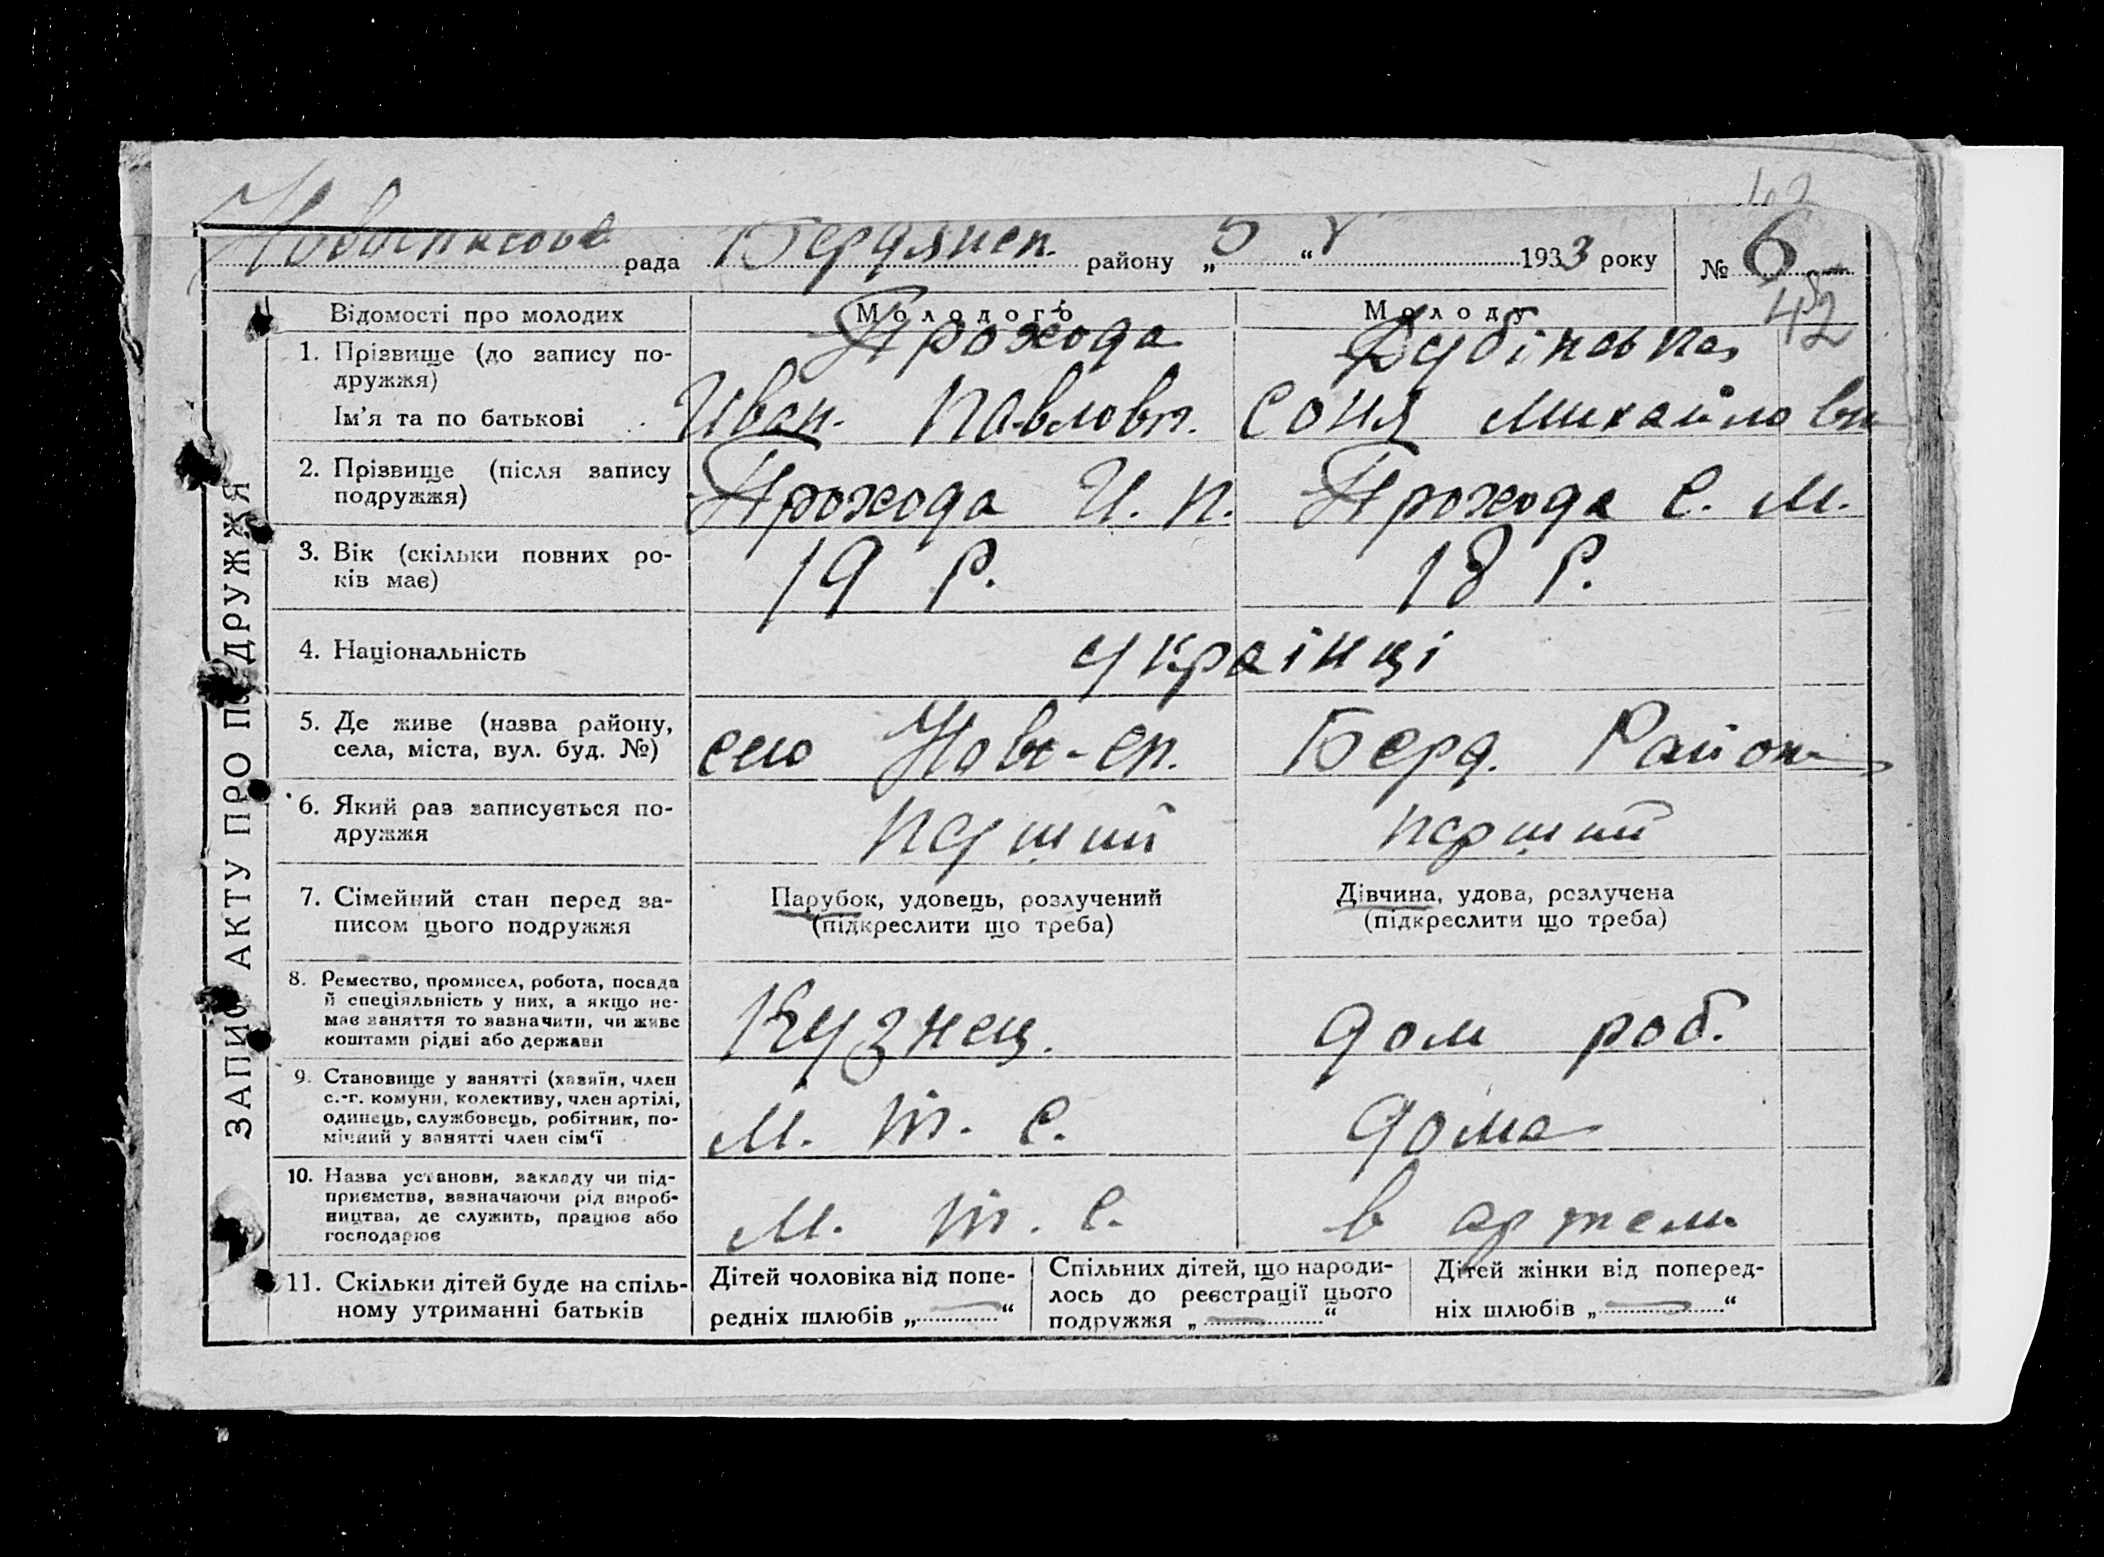 42
Новоспасовс рада Бердянсп. району „5“ V 1933 року № 6
42
ЗАПИС АКТУ ПРО ПОДРУЖЖЯ
Відомості про молодих Молодого Молоду
1. Прізвище (до запису по-
дружжя) Прохода Дубінська
Ім'я та по батькові Иван. Павлович. Соня Михайловн
2. Прізвище (після запису
подружжя) Прохода И. П. Прохода С. М.
3. Вік (скільки повних ро-
ків має) 19 р. 18 р.
4. Національність українці
5. Де живе (назва району,
села, міста, вул. буд. №) село Ново-сп. Берд. Район
6. Який раз записується по-
дружжя перший перший
7. Сімейний стан перед за-
писом цього подружжя
Парубок, удовець, розлучений
(підкреслити що треба)
Дівчина, удова, розлучена
(підкреслити що треба)
8. Ремество, промисел, робота, посада
й спеціяльність у них, а якщо не-
має заняття то зазначити, чи живе
коштами рідні або держави
Кузнец. дом роб.
9. Становище у занятті (хазяїн, член
с.-г. комуни, колективу, член артілі,
одинець, службовець, робітник, по-
мічний у занятті член сім'ї
М. Т. С. дома
10. Назва установи, закладу чи під-
приємства, зазначаючи рід вироб-
ництва, де служить, працює або
господарює
М. Т. С. в артели
11. Скільки дітей буде на спіль-
ному утриманні батьків
Дітей чоловіка від попе-
редніх шлюбів „ — “
Спільних дітей, що народи-
лось до реєстрації цього
подружжя „ — “
Дітей жінки від поперед-
ніх шлюбів „ — “